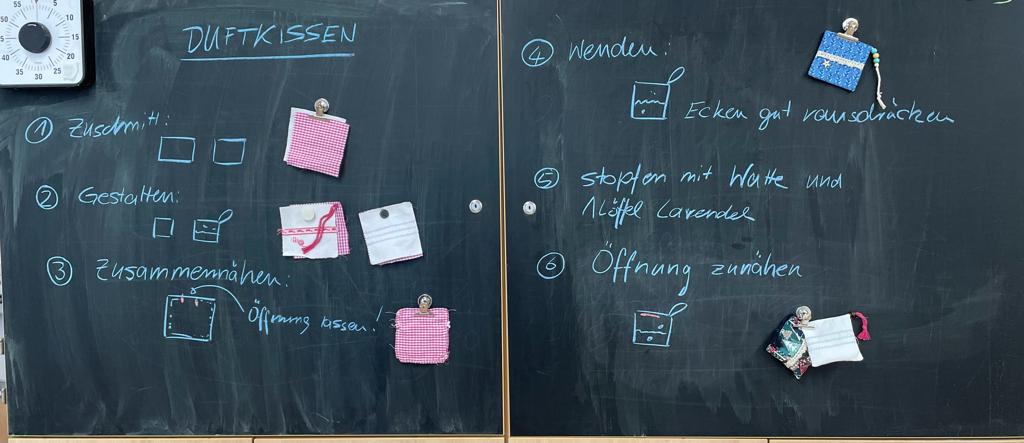 55 5 10 50 15 45 20 40 35 30 25
DUFTKISSEN
1 Zuschnitt:
2 Gestalten:
3 Zusammennähen:
Öffnung lassen!
4 Wenden:
Ecken gut rausdrücken
5 stopfen mit Watte und
1 Löffel Lavendel
6 Öffnung zunähen